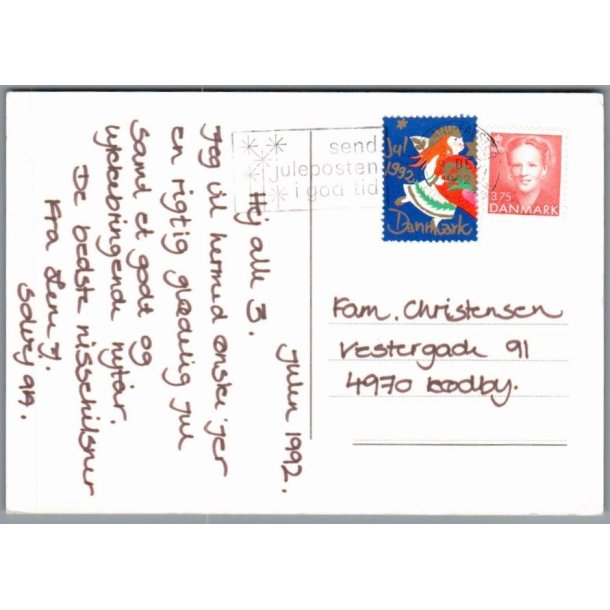 Julen 1992.
Hej alle 3.
Jeg vil hermed ønske jer
en rigtig glædelig jul
samt et godt og
lykkebringende nytår.
De bedste nissehilsner
Fra Lene J.
send
juleposten
i god tid
Jul
1992
Danmark
3.75
DANMARK
Fam. Christensen
Vestergade 91
4970 Rødby.